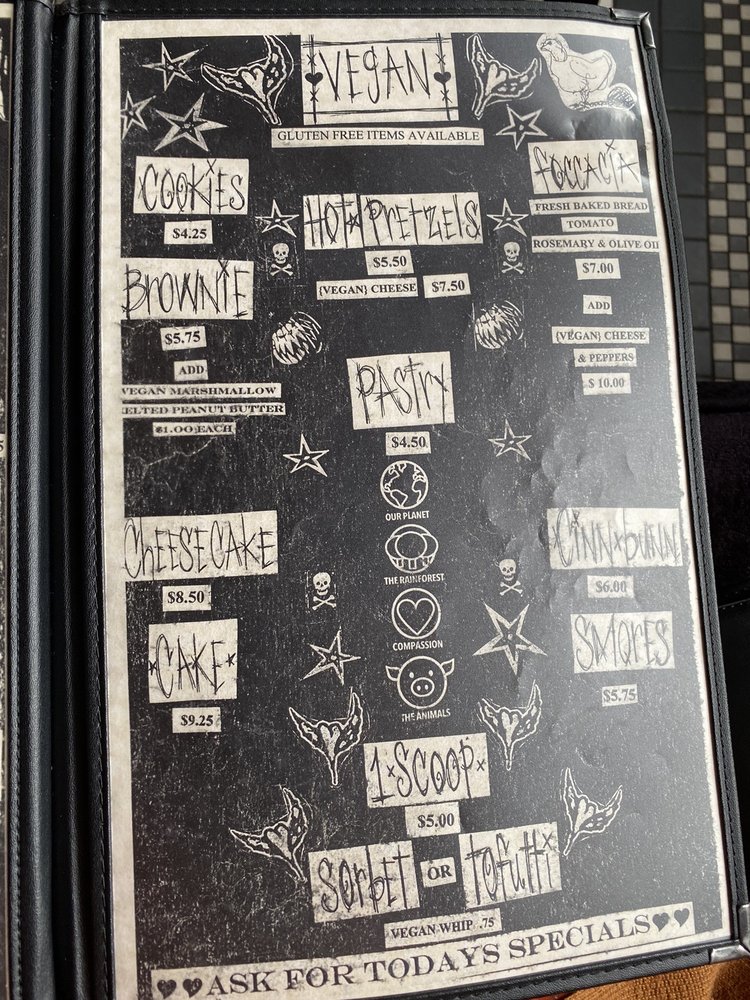 VEGAN
GLUTEN FREE ITEMS AVAILABLE
COOKIES
$4.25
HOT PRETZELS
$5.50
{VEGAN} CHEESE $7.50
FOCCACIA
FRESH BAKED BREAD
TOMATO
ROSEMARY & OLIVE OIL
$7.00
ADD
{VEGAN} CHEESE
& PEPPERS
$ 10.00
BROWNIE
$5.75
ADD
VEGAN MARSHMALLOW
MELTED PEANUT BUTTER
$1.00 EACH
PASTRY
$4.50
OUR PLANET
THE RAINFOREST
COMPASSION
THE ANIMALS
CHEESECAKE
$8.50
CINNxBUNN
$6.00
CAKE
$9.25
SMORES
$5.75
1xSCOOPx
$5.00
SORBET OR TOFUTTI
VEGAN WHIP .75
ASK FOR TODAYS SPECIALS